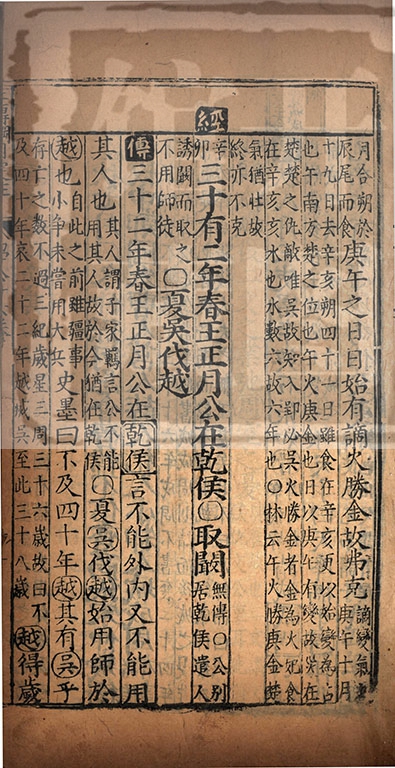 月合朔於辰尾而食庚午之日日始有謫火勝金故弗克謫變氣也庚午十月
十九日去辛亥朔四十一日雖食在辛亥更以始變為占也午南方楚之位也午火庚金也日以庚午有變故災在
楚楚之仇敵唯吳故知入郢必吳火勝金者金為火妃食在辛亥亥水也水數六故六年也○林云午火勝庚金楚
氣猶壯故終亦不克
經
辛卯三十有二年春王正月公在乾侯○取闞無傳○公別居乾侯遣人
誘闞而取之不用師徒○夏吳伐越
傳三十二年春王正月公在乾侯言不能外內又不能用
其人也其人謂子家羈言公不能用其人故於今猶在乾侯○夏吳伐越始用師於
越也自此之前雖疆事小爭未嘗用大兵史墨曰不及四十年越其有吳乎
存亡之數不過三紀歲星三周三十六歲故曰不及四十年哀二十二年越滅吳至此三十八歲越得歲